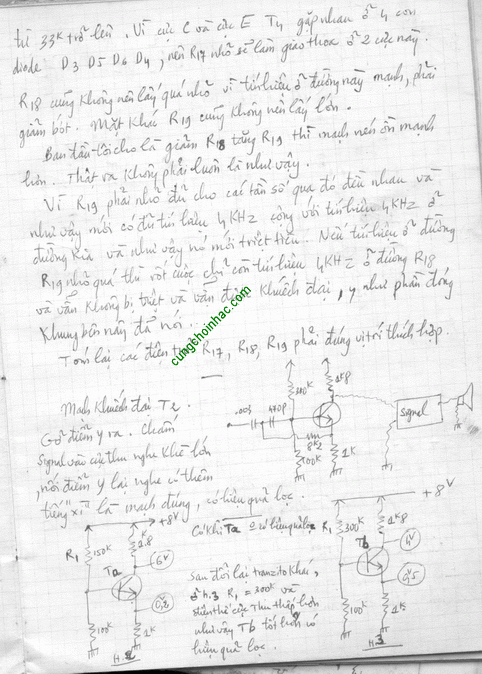 từ 33K trở lên. Vì cực C và cực E T4 gặp nhau ở 4 con
diode D3 D5 D6 D4, nên R17 nhỏ sẽ làm giao thoa ở 2 cực này.
R18 cũng không nên lấy quá nhỏ vì tín hiệu ở đường này mạnh, phải
giảm bớt. Mặt khác R19 cũng không nên lấy lớn.
Ban đầu tôi cho là giảm R18 tăng R19 thì mạch nén ồn mạnh
hơn. Thật ra không phải luôn là như vậy.
Vì R19 phải nhỏ đủ cho các tần số qua đó đều nhau và
như vậy mới có đủ tín hiệu 4KHz cộng với tín hiệu 4KHz ở
đường kia và như vậy nó mới triệt tiêu... Nếu tín hiệu ở đường
R19 nhỏ quá thì rốt cuộc chỉ còn tín hiệu 4KHz ở đường R18
và vẫn không bị triệt và vẫn được khuếch đại, y như phần đóng
khung bên nãy đã nói.
Tóm lại các điện trở R17, R18, R19 phải đúng vị trí thích hợp.
cungchoinhac.com
Mạch khuếch đại T2.
Gỡ điểm y ra. Chấm
signal vào cực thu nghe khẽ hơn
, nối điểm y lại nghe có thêm
tiếng "xì" là mạch đúng, có hiệu quả lọc.
.003 470P
390K
1K8
8K2
100K
1K
Signal
+8V
R1 150K
1.8
6V
Ta
0,2
100K
1K
H.2
Có khi Ta có hiệu quả lọc
Sau đổi lại tranzito khác,
ở h.3 R1 = 300K và
điện thế cực thu thấp hơn
như vậy Tb tốt hơn có
hiệu quả lọc.
+8V
R1 300K
1K8
4V
Tb
0,5
100K
1K
H.3